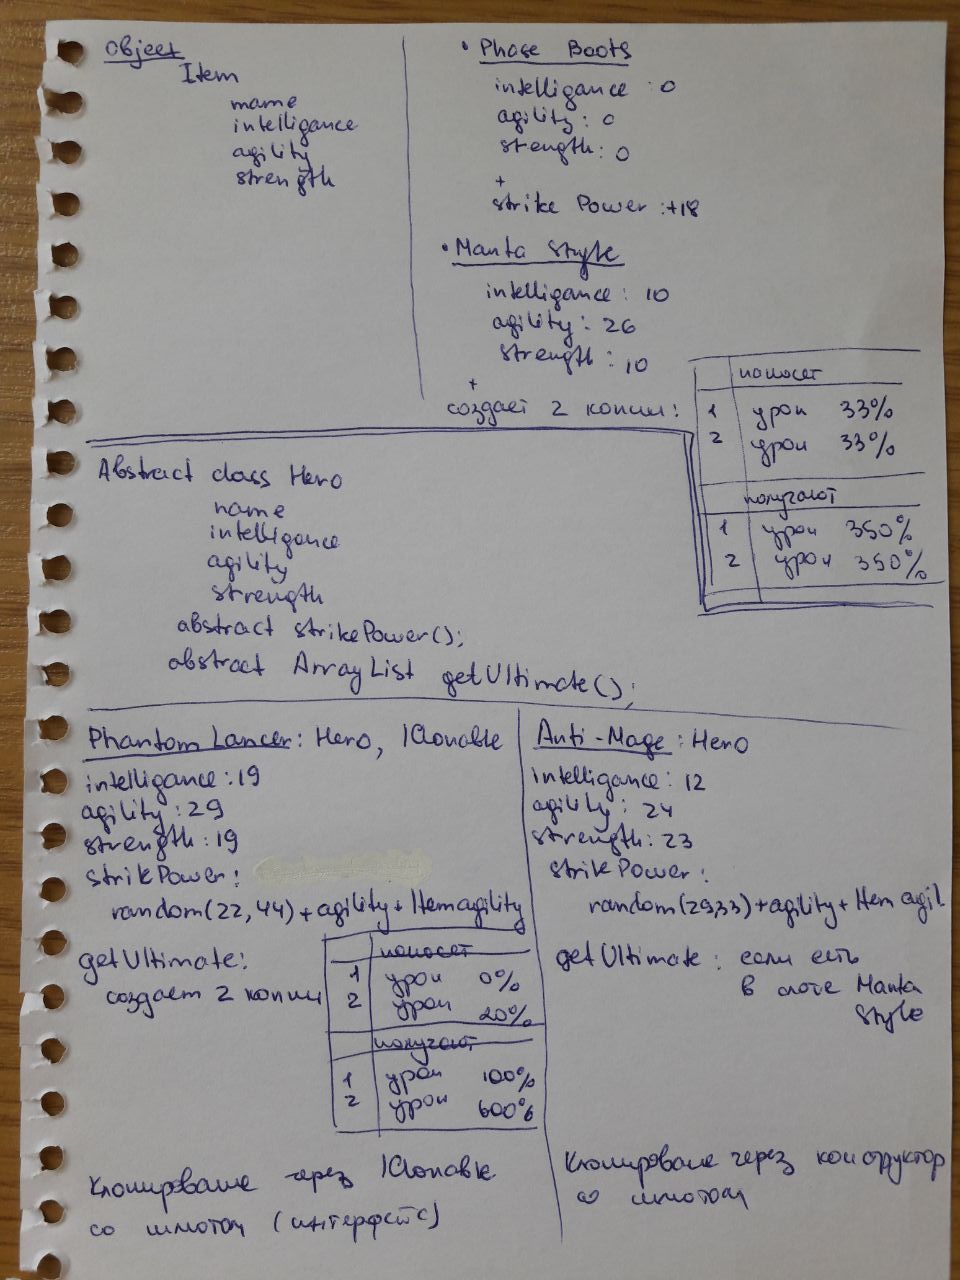 Object
Item
name
intelligance
agility
strength
• Phase Boots
intelligance : 0
agility : 0
stength : 0
+
strike Power : +18
• Manta Style
intelligance : 10
agility : 26
strength : 10
+
создает 2 копии:
наносят
1 урон 33%
2 урон 33%
получают
1 урон 350%
2 урон 350%
Abstract class Hero
name
intelligance
agility
strength
abstract strikePower();
abstract ArrayList getUltimate();
Phantom Lancer : Hero, IClonable
intelligance : 19
agility : 29
strength : 19
strikPower :
random(22, 44) + agility + Itemagility
getUltimate:
создает 2 копии
наносят
1 урон 0%
2 урон 20%
получают
1 урон 100%
2 урон 600%
Клонирование через IClonable
со шмотом (интерфейс)
Anti-Mage : Hero
intelligance : 12
agility : 24
strength : 23
strikPower :
random(29,33) + agility + Item agil.
getUltimate : если есть
в слоте Manta
Style
Клонирование через конструктор
со шмотом